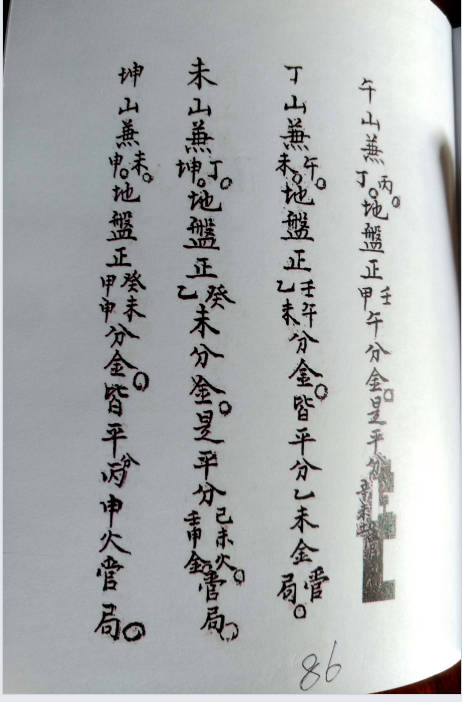 午山兼丙丁。地盤正壬甲午分金。是平分辛未
丁山兼午未。地盤正壬午乙未分金。皆平分乙未金管局。
未山兼丁坤。地盤正癸乙未分金。是平分己未火壬申金管局。
坤山兼未申。地盤正癸未甲申分金。皆平分丙申火管局。
86